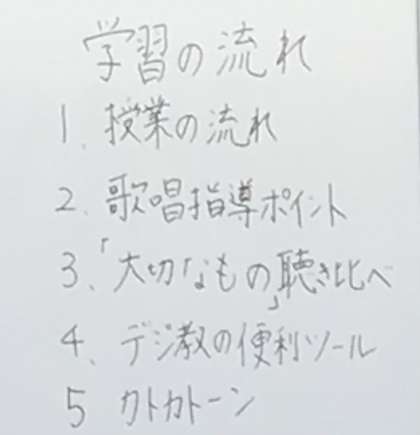 学習の流れ
1、授業の流れ
2、歌唱指導ポイント
3、「大切なもの」聴き比べ
4、デジ教の便利ツール
5 カトカトーン